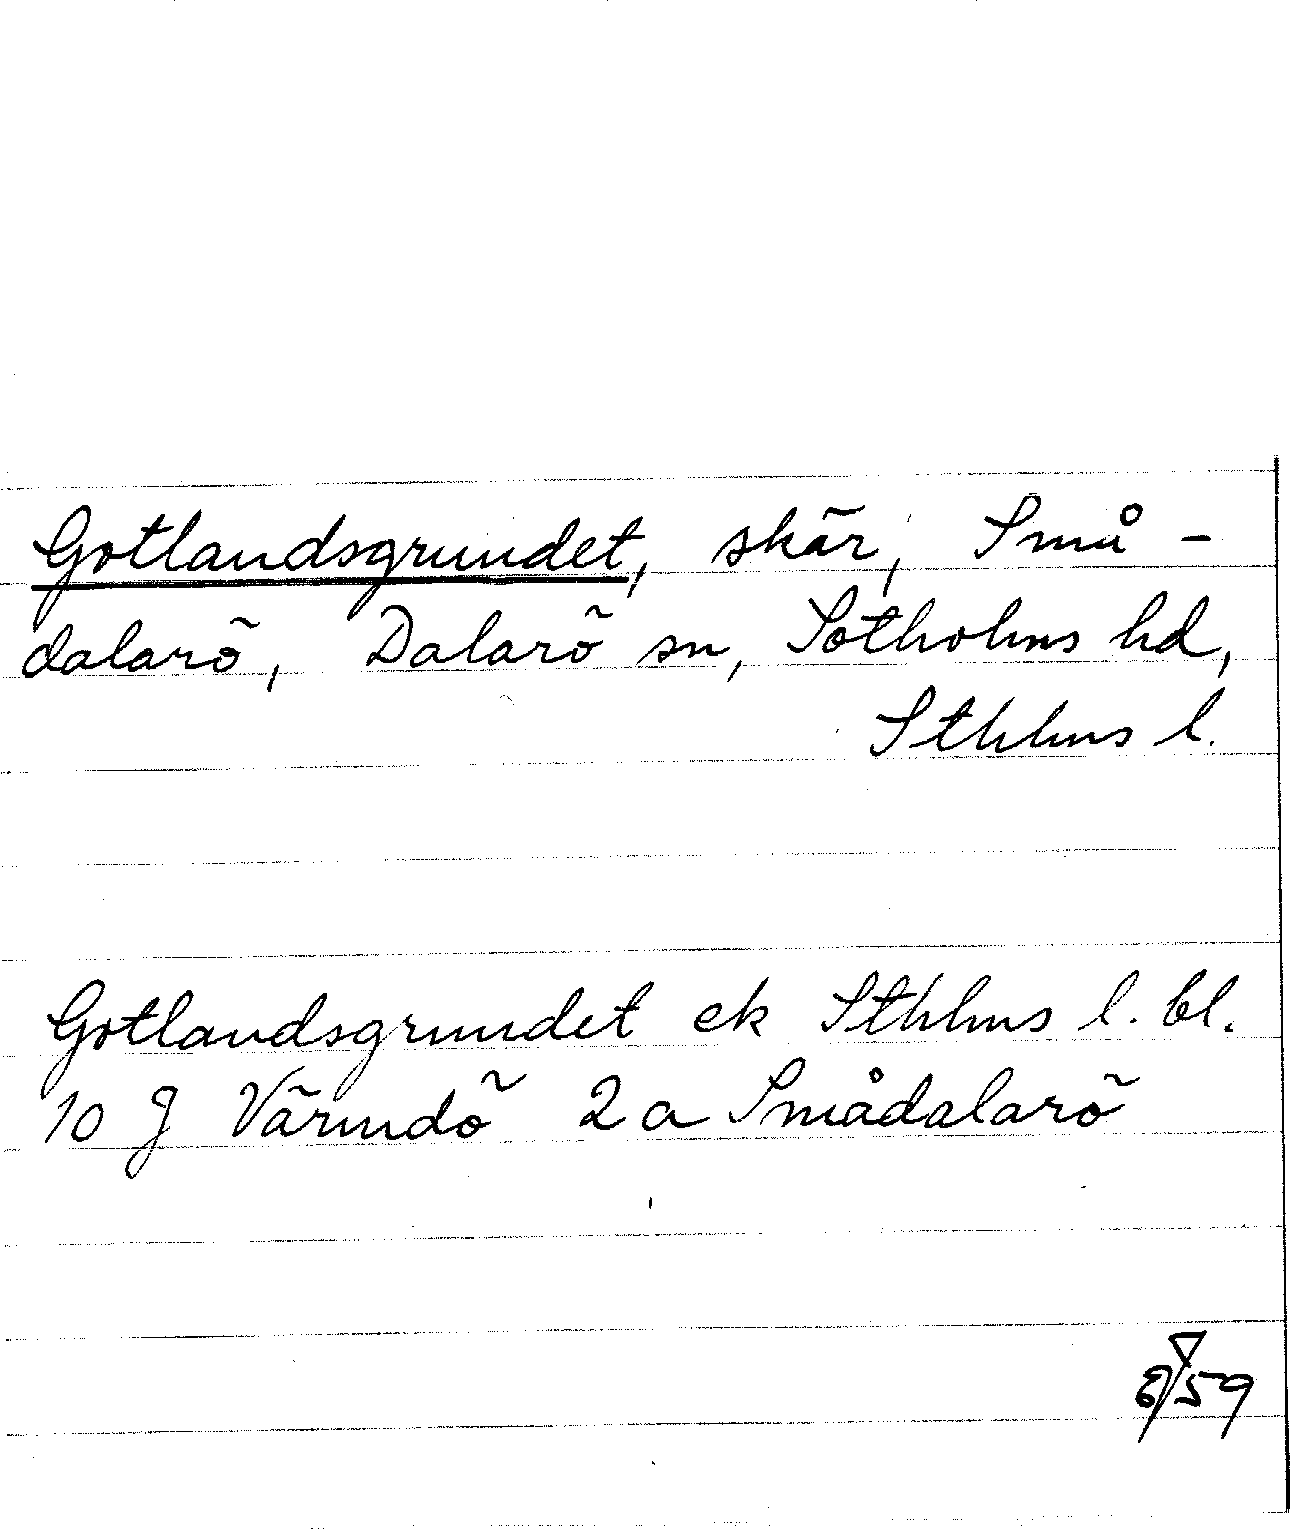 Gotlandsgrundet, skär, Små-
dalarö, Dalarö sn, Sotholms hd,
Sthlms l.
Gotlandsgrundet ek Sthlms l. bl.
10 J Värmdö 2 a Smådalarö
59